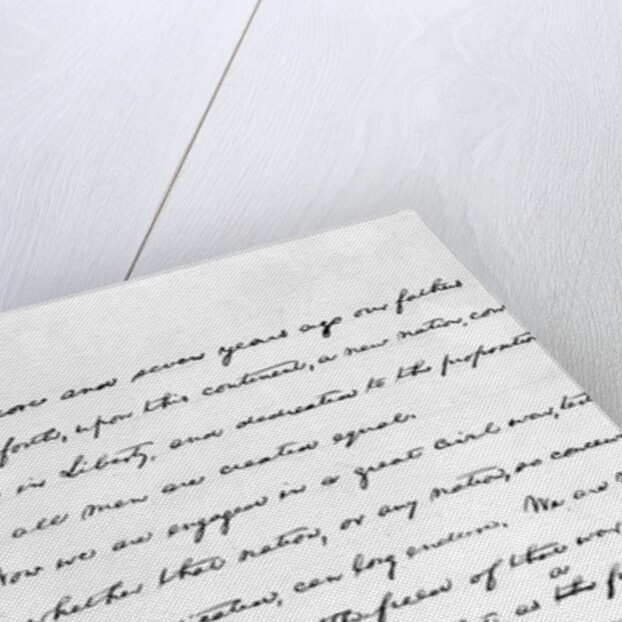 core and seven years ago our fathers
forth, upon this continent, a new nation, con
in Liberty, and dedicated to the proposition
all men are created equal.
Now we are engaged in a great civil war, test
whether that nation, or any nation, so conceiv
can long endure. We are
field of that war
a
as the f